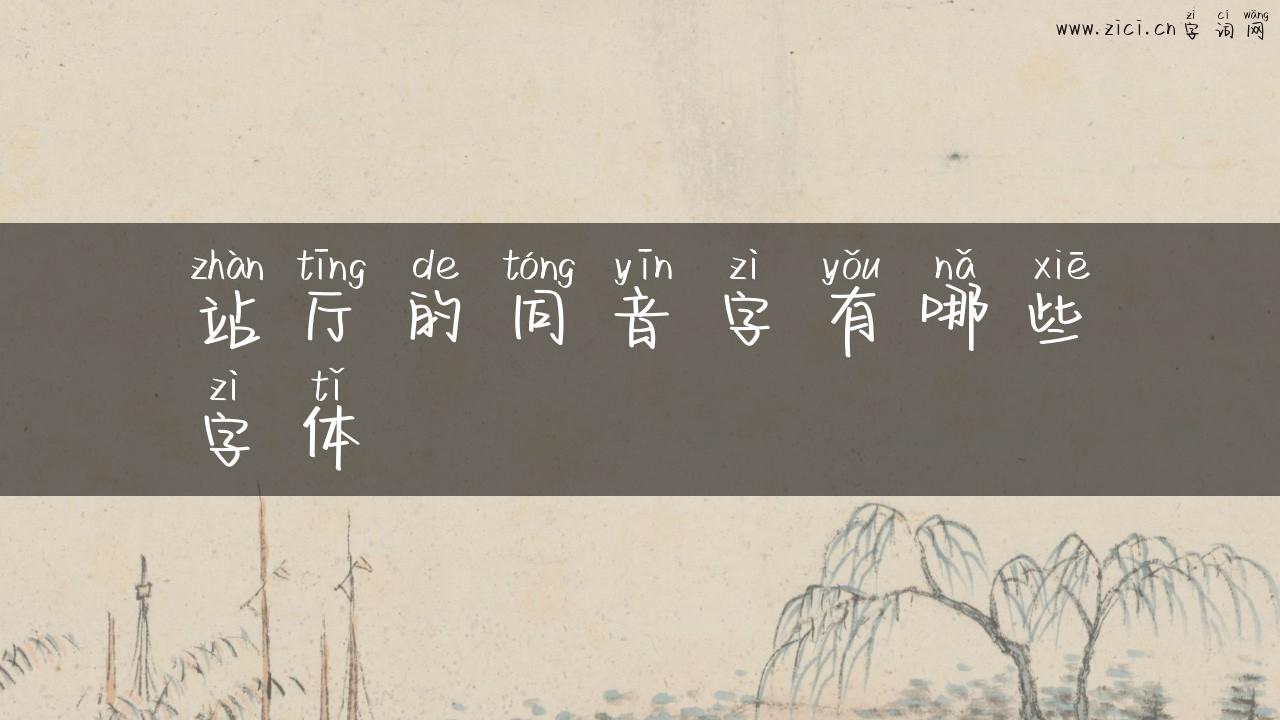 zì cí wǎng
www.zici.cn 字词网
zhàn tīng de tóng yīn zì yǒu nǎ xiē
站厅的同音字有哪些
zì tǐ
字体